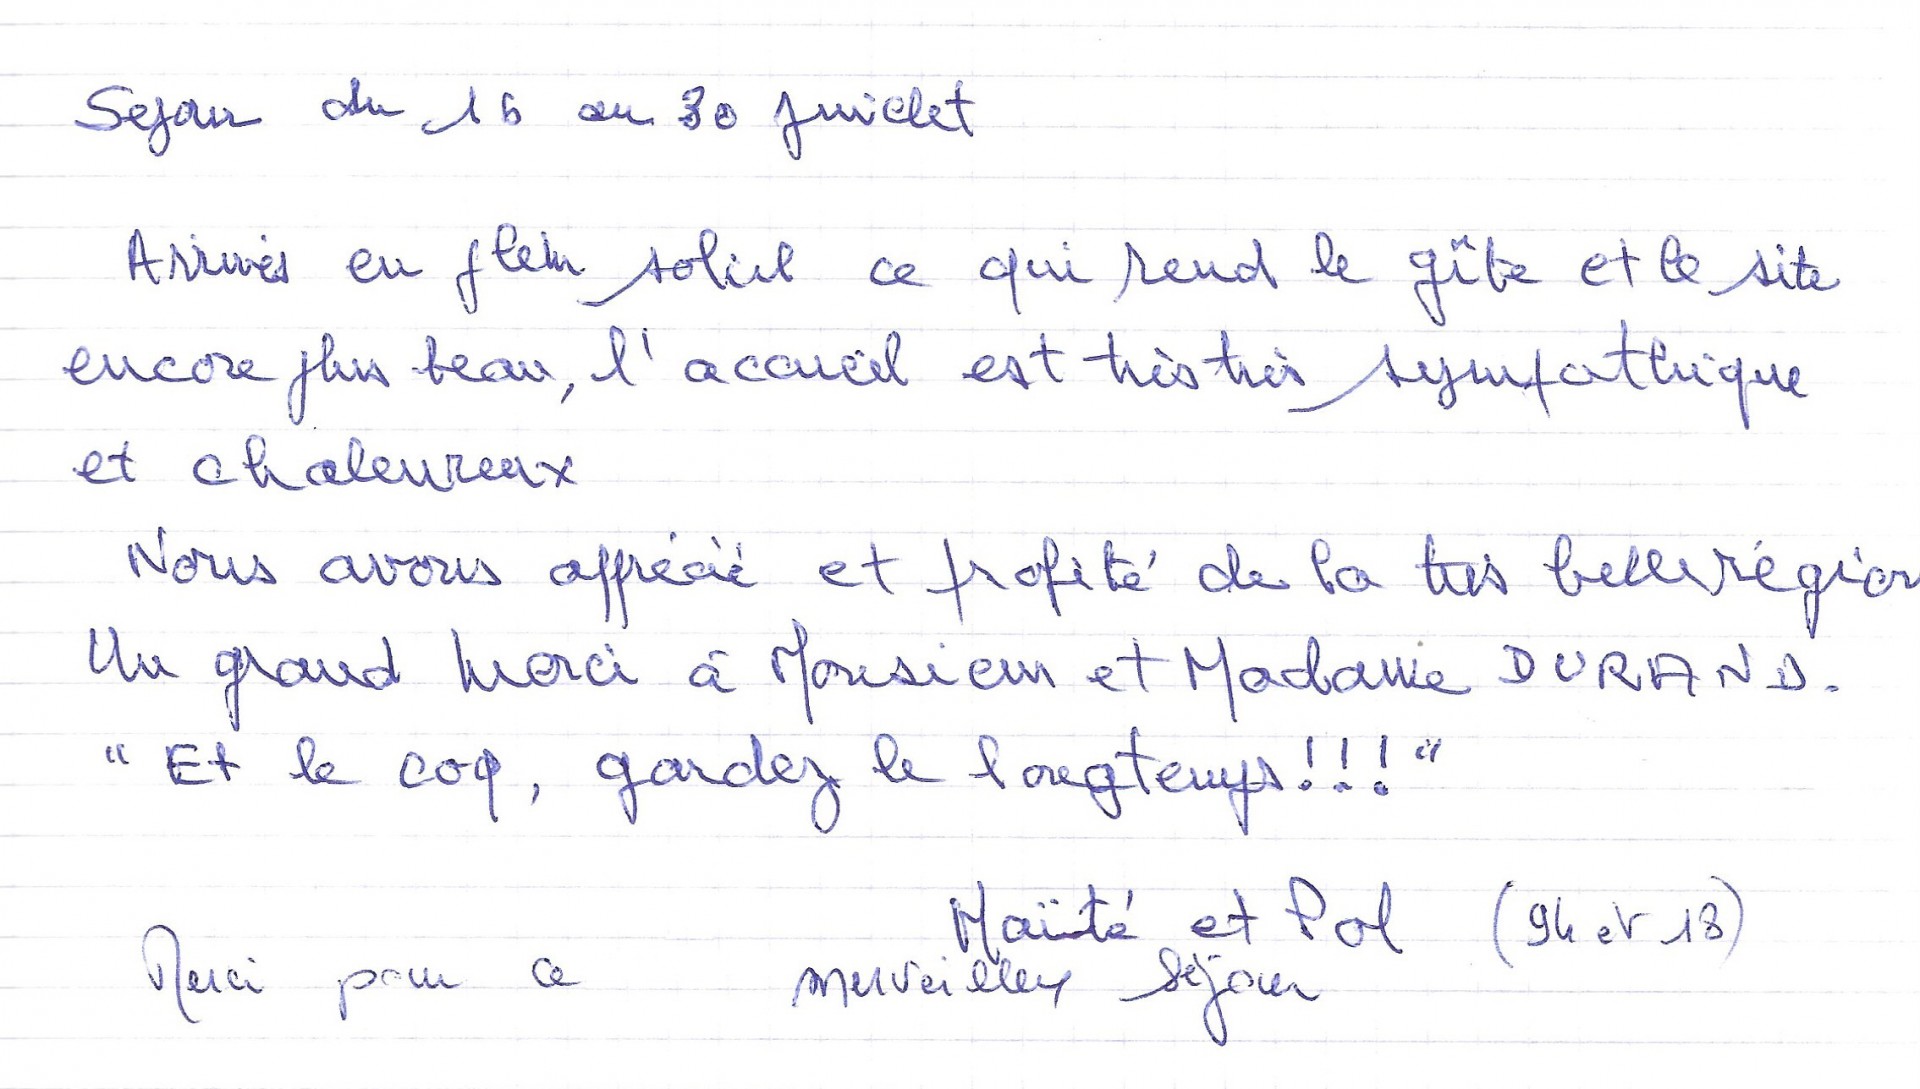 Sejour du 16 au 30 Juillet
Arrivés en plein soleil ce qui rend le gîte et le site
encore plus beau, l'accueil est très très sympathique
et chaleureux
Nous avons apprécié et profité de la très belle région
Un grand merci à Monsieur et Madame DURAND.
"Et le coq, gardez le longtemps!!!"
Maïté et Pol (94 et 13)
Merci pour ce merveilleux séjour